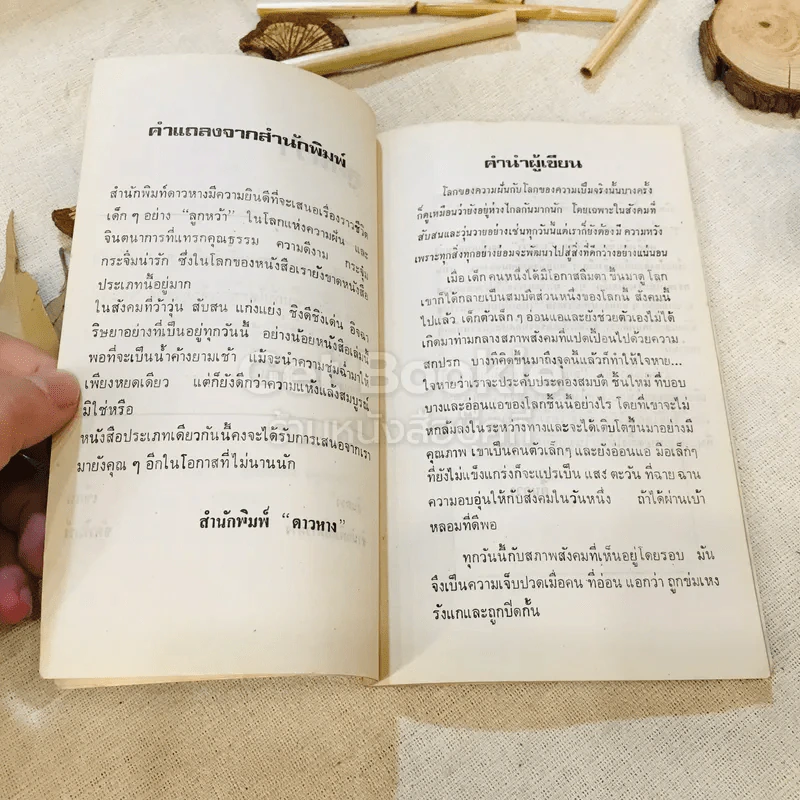 คำแถลงจากสำนักพิมพ์
สำนักพิมพ์ดาวหางมีความยินดีที่จะเสนอเรื่องราวชีวิต
เด็ก ๆ อย่าง “ลูกหว้า” ในโลกแห่งความฝัน และ
จินตนาการที่แทรกคุณธรรม ความดีงาม กระจุ๋ม
กระจิ่มน่ารัก ซึ่งในโลกของหนังสือเรายังขาดหนังสือ
ประเภทนี้อยู่มาก
ในสังคมที่ว้าวุ่น สับสน แก่งแย่ง ชิงดีชิงเด่น อิจฉา
ริษยาอย่างที่เป็นอยู่ทุกวันนี้ อย่างน้อยหนังสือเล่มนี้
พอที่จะเป็นน้ำค้างยามเช้า แม้จะนำความชุ่มฉ่ำมาให้
เพียงหยดเดียว แต่ก็ยังดีกว่าความแห้งแล้งสมบูรณ์
มิใช่หรือ
หนังสือประเภทเดียวกันนี้คงจะได้รับการเสนอจากเรา
มายังคุณ ๆ อีกในโอกาสที่ไม่นานนัก
สำนักพิมพ์ “ดาวหาง”
คำนำผู้เขียน
โลกของความฝันกับโลกของความเป็นจริงนั้นบางครั้ง
ก็ดูเหมือนว่ายังอยู่ห่างไกลกันมากนัก โดยเฉพาะในสังคมที่
สับสนและวุ่นวายอย่างเช่นทุกวันนี้แต่เราก็ยังต้องมี ความหวัง
เพราะทุกสิ่งทุกอย่างย่อมจะพัฒนาไปสู่สิ่งที่ดีกว่าอย่างแน่นอน
เมื่อ เด็ก คนหนึ่งได้มีโอกาสลืมตา ขึ้นมาดู โลก
เขาก็ได้กลายเป็นสมบัติส่วนหนึ่งของโลกนี้ สังคมนี้
ไปแล้ว เด็กตัวเล็กๆ อ่อนแอและยังช่วยตัวเองไม่ได้
เกิดมาท่ามกลางสภาพสังคมที่แปดเปื้อนไปด้วยความ
สกปรก บางทีคิดขึ้นมาถึงจุดนี้แล้วก็ทำให้ใจหาย...
ใจหายว่าเราจะประคับประคองสมบัติ ชิ้นใหม่ ที่บอบ
บางและอ่อนแอของโลกชิ้นนี้อย่างไร โดยที่เขาจะไม่
หกล้มลงในระหว่างทางและจะได้เติบโตขึ้นมาอย่างมี
คุณภาพ เขาเป็นคนตัวเล็กๆ และยังอ่อนแอ มือเล็กๆ
ที่ยังไม่แข็งแกร่งก็จะแปรเป็น แสง ตะวัน ที่ฉาย ฉาน
ความอบอุ่นให้กับสังคมในวันหนึ่ง ถ้าได้ผ่านเบ้า
หลอมที่ดีพอ
ทุกวันนี้กับสภาพสังคมที่เห็นอยู่โดยรอบ มัน
จึงเป็นความเจ็บปวดเมื่อคน ที่อ่อน แอกว่า ถูกข่มเหง
รังแกและถูกปิดกั้น